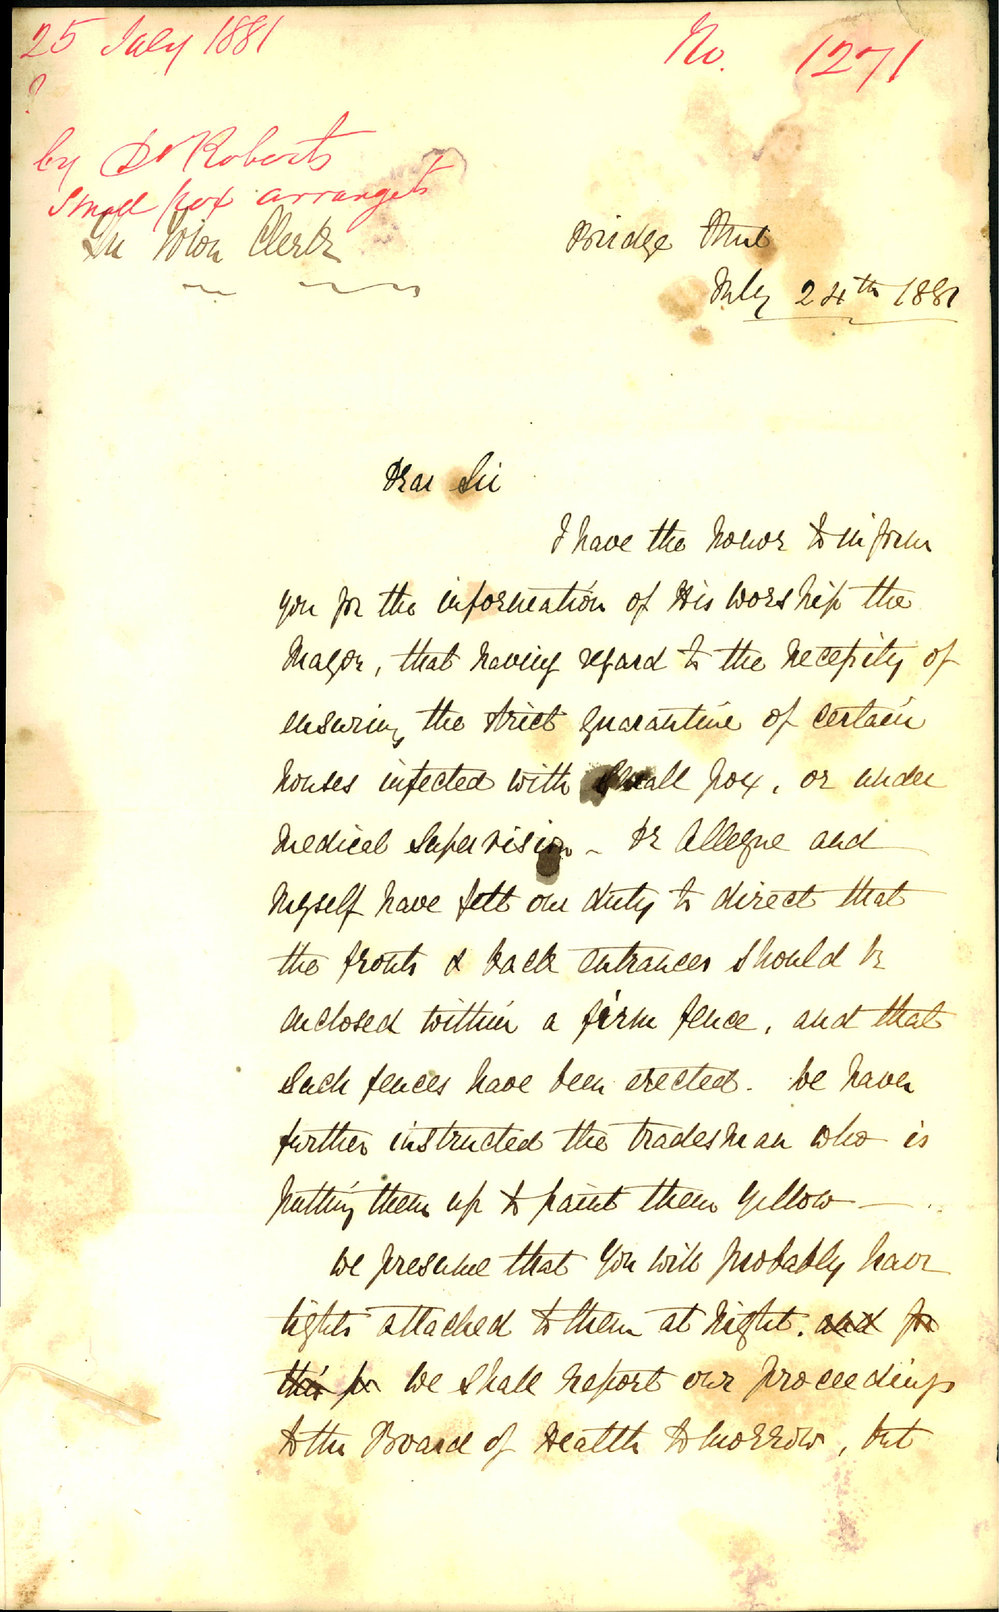 25 July 1881
No. 1271
by Dr Roberts
Small pox arrangets
The Town Clerk
Bridge Street
July 24th 1881
Dear Sir
I have the honor to inform
you for the information of His Worship the
Mayor, that having regard to the necessity of
ensuring the strict quarantine of certain
houses infected with small pox, or under
medical supervision - Dr Alleyne and
myself have felt our duty to direct that
the fronts & back entrances should be
enclosed within a firm fence, and that
such fences have been erected. We have
further instructed the tradesman who is
putting them up to paint them yellow —
We presume that you will probably have
lights attached to them at night. and for
this for We shall report our proceedings
to the Board of Health tomorrow, but